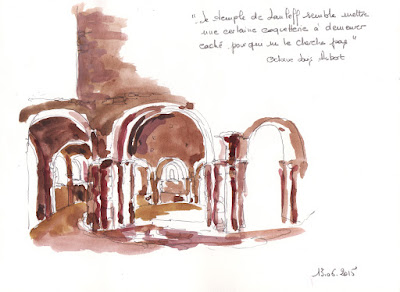 "Le temple de Lanleff semble mettre
une certaine coquetterie à demeurer
caché pour qui ne le cherche pas"
13.06.2015